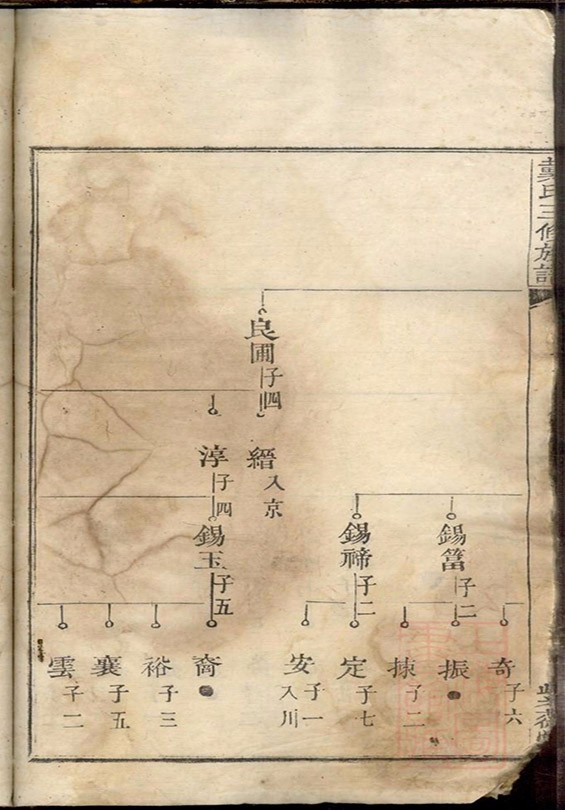 氏三修族譜
良圃
子四
縉
入京
淳
子四
錫富
子二
錫禘
子二
錫玉
子五
奇
子六
振
子二
定
子七
安
子一
入川
裔
裕
子三
襄
子五
雲
子二